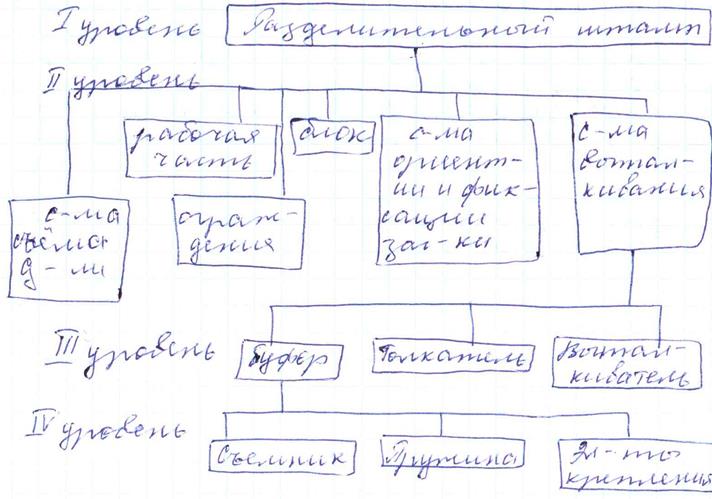 I уровень Разделительный штамп
II уровень
рабочая
часть
блок
с-ма
ориент-
ии и фик-
сации
заг-ки
с-ма
вытал-
кивания
с-ма
съёма
д-ли
ограж-
дения
III уровень Буфер Толкатель Вытал-
киватель
IV уровень Съемник Пружина Эл-ты
крепления